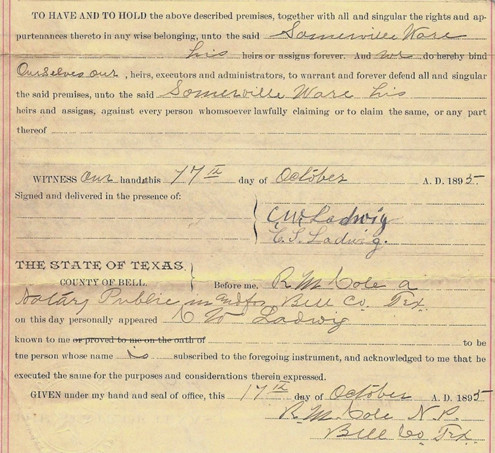 TO HAVE AND TO HOLD the above described premises, together with all and singular the rights and ap-
purtenances thereto in any wise belonging, unto the said Somerville Ware
his heirs or assigns forever. And we do hereby bind
Ourselves our, heirs, executors and administrators, to warrant and forever defend all and singular
the said premises, unto the said Somerville Ware his
heirs and assigns, against every person whomsoever lawfully claiming or to claim the same, or any part
thereof
WITNESS our hand, this 17th day of October A. D. 1895
Signed and delivered in the presence of:
C W Ladwig
C. T. Ladwig.
THE STATE OF TEXAS.
COUNTY OF BELL.
Before me, R M Cole a
Notary Public in and for Bell Co. Tex.
on this day personally appeared C W Ladwig
known to me or proved to me on the oath of to be
the person whose name is subscribed to the foregoing instrument, and acknowledged to me that he
executed the same for the purposes and considerations therein expressed.
GIVEN under my hand and seal of office, this 17th day of October A. D. 1895
R. M. Cole N. P.
Bell Co Tex